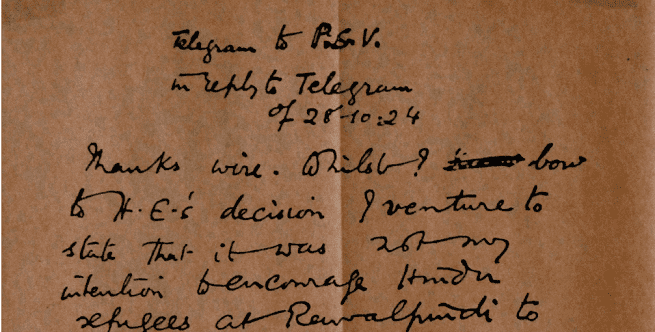 Telegram to P.S.V.
in reply to Telegram
of 28-10-24
Thanks wire. Whilst I bow
to H.E.'s decision I venture to
state that it was not my
intention to encourage Hindu
refugees at Rawalpindi to